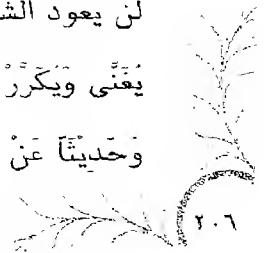 لن يعود
يُغَنَّى وَيُكَرَّرْ
وَحَدِيْثَاً عَنْ
٢٠٦